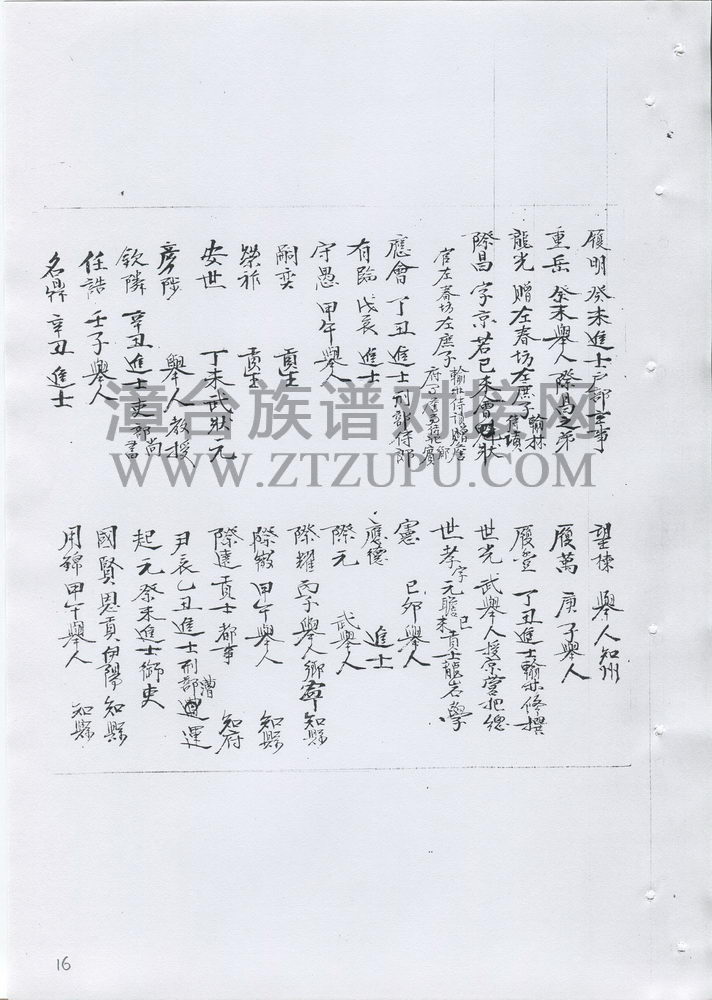 履明 癸未進士 戶部主事
重岳 癸未舉人 際昌之弟
龍光 贈左春坊左庶子 翰林侍讀
際昌 字京若 己未會魁狀
官左春坊左庶子
應會 丁丑進士 刑部侍郎
有臨 戊辰進士
守愚 甲午舉人
嗣奕 貢生
榮祚 貢生
安世 丁未武狀元
彥陟 舉人 教授
欽隣 辛丑進士 吏部尚書
任誥 壬子舉人
名鼎 辛丑進士
望棟 舉人 知州
履萬 庚子舉人
履豐 丁丑進士 翰林修撰
世光 武舉人 授京營把總
世孝 字元瞻 己未貢士 龍岩學
憲 己卯舉人
應德 進士
際元 武舉人
際耀 丙子舉人 鄉寧知縣
際徵 甲午舉人 知縣
際達 貢士 都事 知府
尹辰 乙丑進士 刑部 漕運
起元 癸未進士 御史
國賢 恩貢 伊陽知縣
用錦 甲午舉人 知縣
漳台族谱对接网
WWW.ZTZUPU.COM
16